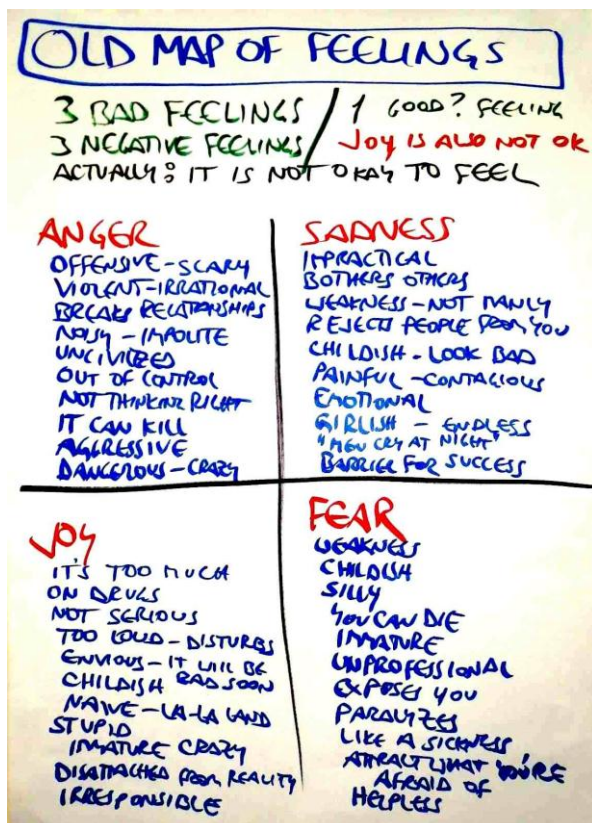 OLD MAP OF FEELINGS
3 BAD FEELINGS / 1 GOOD? FEELING
3 NEGATIVE FEELINGS / JOY IS ALSO NOT OK
ACTUALLY: IT IS NOT OKAY TO FEEL
ANGER
OFFENSIVE - SCARY
VIOLENT - IRRATIONAL
BREAKS RELATIONSHIPS
NOISY - IMPOLITE
UNCIVILIZED
OUT OF CONTROL
NOT THINKING RIGHT
IT CAN KILL
AGGRESSIVE
DANGEROUS - CRAZY
SADNESS
IMPRACTICAL
BOTHERS OTHERS
WEAKNESS - NOT MANLY
REJECTS PEOPLE FROM YOU
CHILDISH - LOOK BAD
PAINFUL - CONTAGIOUS
EMOTIONAL
GIRLISH - ENDLESS
"MEN CRY AT NIGHT"
BARRIER FOR SUCCESS
JOY
IT'S TOO MUCH
ON DRUGS
NOT SERIOUS
TOO LOUD - DISTURBS
ENVIOUS - IT WILL BE
CHILDISH BAD SOON
NAIVE - LA-LA LAND
STUPID
IMMATURE CRAZY
DISATTACHED FROM REALITY
IRRESPONSIBLE
FEAR
WEAKNESS
CHILDISH
SILLY
YOU CAN DIE
IMMATURE
UNPROFESSIONAL
EXPOSES YOU
PARALYZES
LIKE A SICKNESS
ATTRACT WHAT YOU'RE
AFRAID OF
HELPLESS